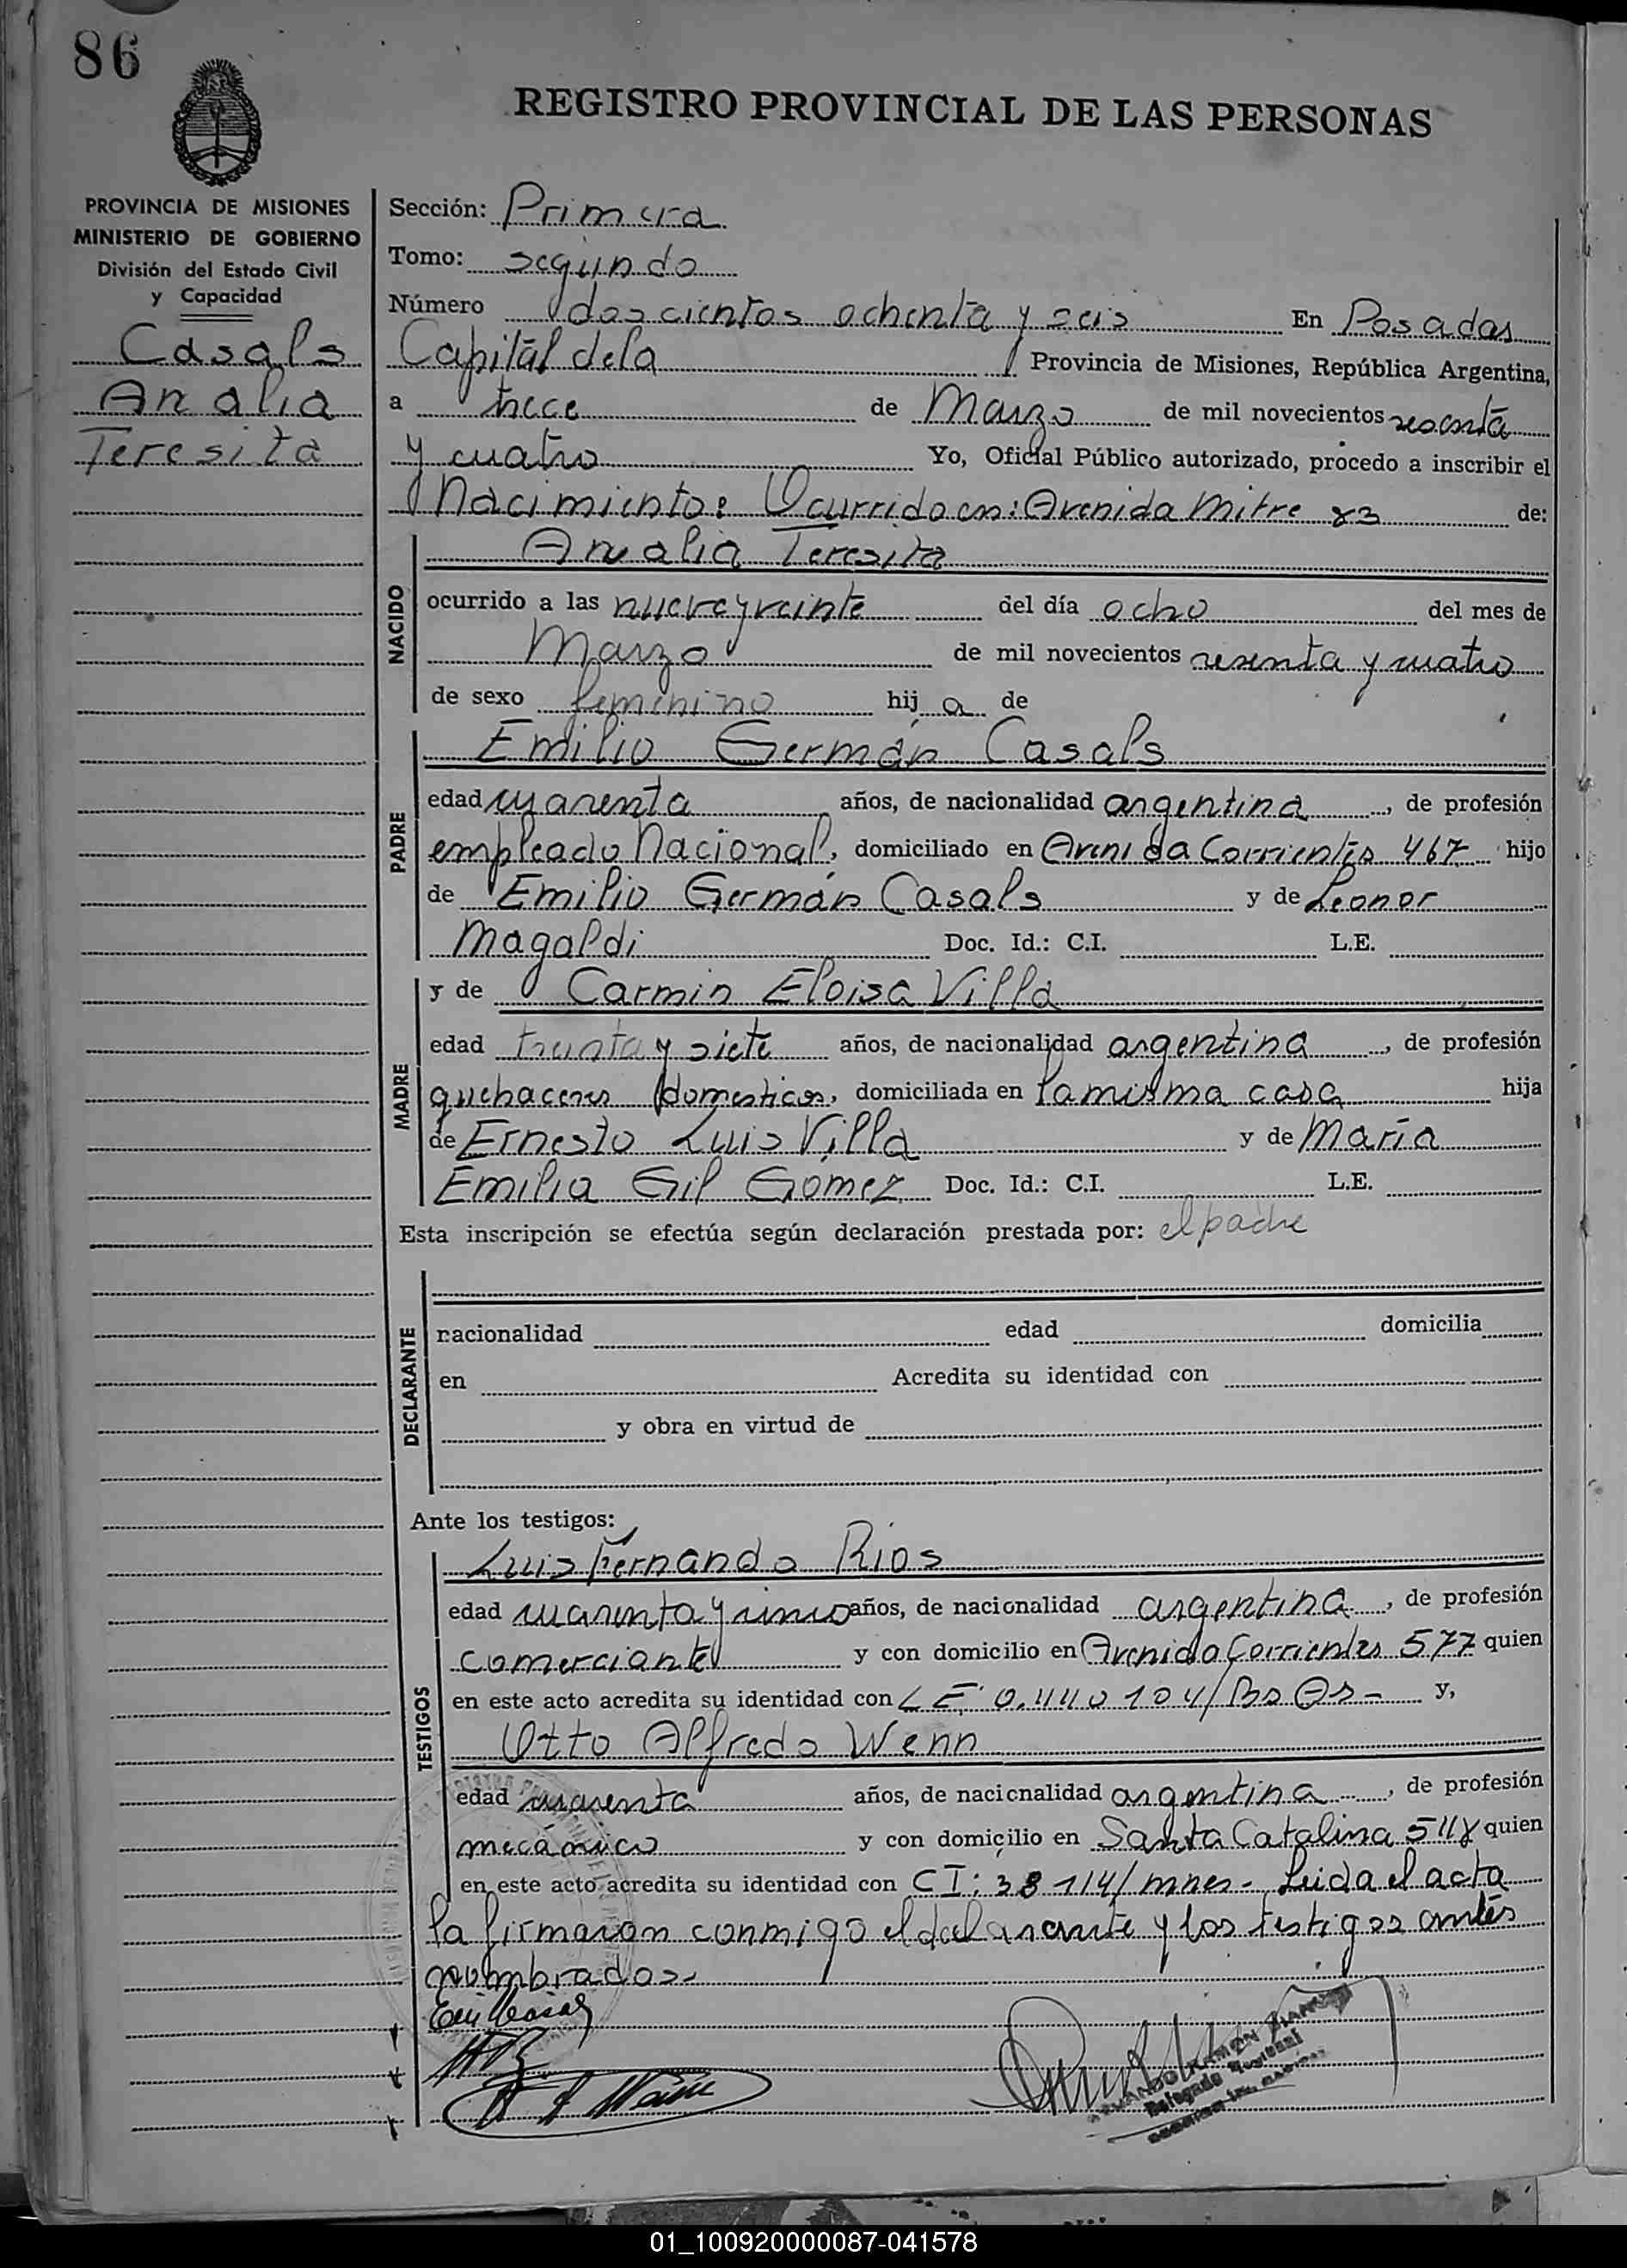 86
REGISTRO PROVINCIAL DE LAS PERSONAS
PROVINCIA DE MISIONES
MINISTERIO DE GOBIERNO
División del Estado Civil
y Capacidad
Casals
Analia
Teresita
Sección: Primera
Tomo: segundo
Número doscientos ochenta y seis En Posadas
Capital de la Provincia de Misiones, República Argentina,
a trece de Marzo de mil novecientos sesenta
y cuatro Yo, Oficial Público autorizado, procedo a inscribir el
Nacimiento: Ocurrido en: Avenida Mitre 83 de:
NACIDO
Analia Teresita
ocurrido a las nueve y veinte del día ocho del mes de
Marzo de mil novecientos sesenta y cuatro
de sexo femenino hij a de
PADRE
Emilio Germán Casals
edad cuarenta años, de nacionalidad argentina, de profesión
empleado Nacional, domiciliado en Avenida Corrientes 467 hijo
de Emilio Germán Casals y de Leonor
Magaldi Doc. Id.: C.I. L.E.
MADRE
y de Carmin Eloisa Villa
edad treinta y siete años, de nacionalidad argentina, de profesión
quehaceres domesticos, domiciliada en la misma casa hija
de Ernesto Luis Villa y de María
Emilia Gil Gomez Doc. Id.: C.I. L.E.
Esta inscripción se efectúa según declaración prestada por: el padre
DECLARANTE
nacionalidad edad domicilia
en Acredita su identidad con
y obra en virtud de
Ante los testigos:
TESTIGOS
Luis Fernando Rios
edad cuarenta y cinco años, de nacionalidad argentina, de profesión
comerciante y con domicilio en Avenida Corrientes 577 quien
en este acto acredita su identidad con L E 0.440104/Bs As- y,
Otto Alfredo Wenn
edad cuarenta años, de nacionalidad argentina, de profesión
mecánico y con domicilio en Santa Catalina 548 quien
en este acto acredita su identidad con CI: 38114/mnes- Leida el acta
la firmaron conmigo el declarante y los testigos antes
nombrados-
RAMON
Delegado
01_100920000087-041578